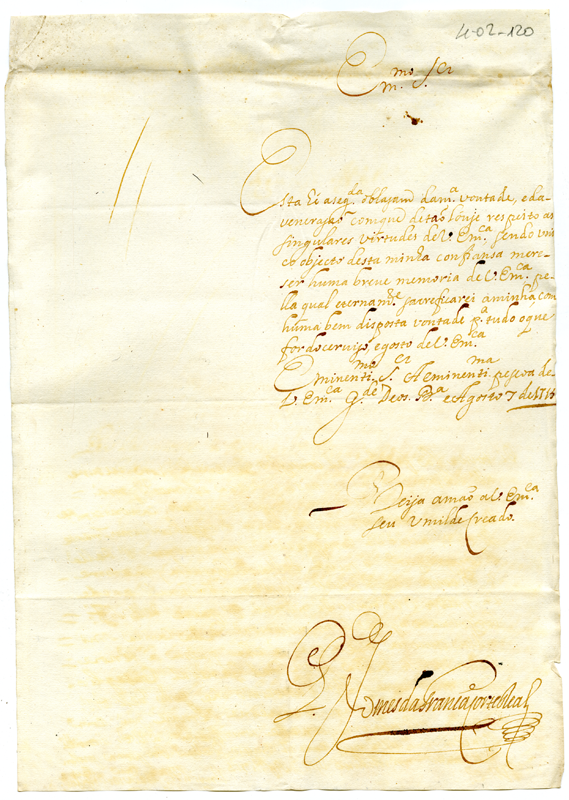 4-02-120
Em.mo S.or
Esta hé a seg.da obligasam da m.a vontade, e da
com que de tão Louje respeito as
singulares virtudes de V. Em.ca sendo uni
co objecto desta minha confiansa mere-
ser huma breve memoria de V. Em.ca pe-
lla qual eternam.te a minha com
huma bem disposta vontade p.a tudo o que
for do cervisso, e gosto de V. Em.ca
Eminenti.mo S.or A eminenti.ma pesoa de
V. Em.ca G.de Deos. B.a e Agosto 7 de
Beija a mão a V. Em.ca
seu Umilde Creado.
Gomes da Franca Corte Real